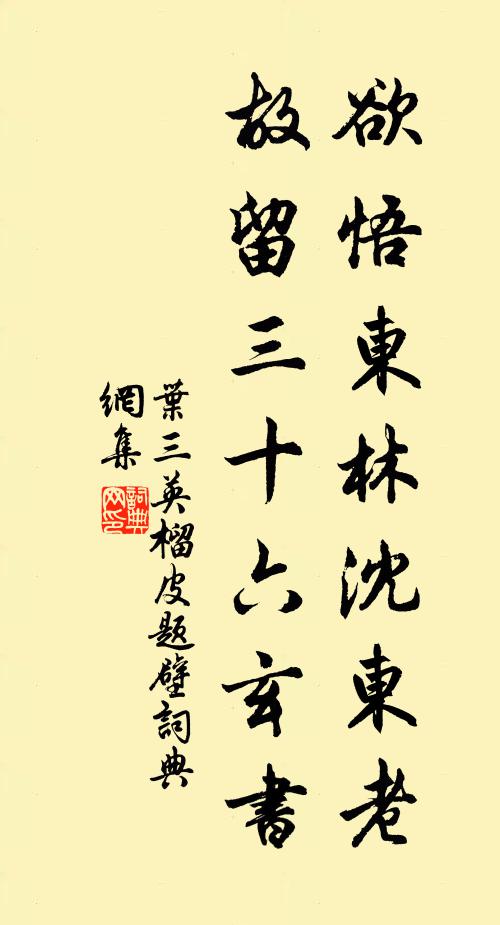 欲悟東林沈東老
故留三十六玄書
葉三英榴皮題壁詞典
網集
詞典
网印